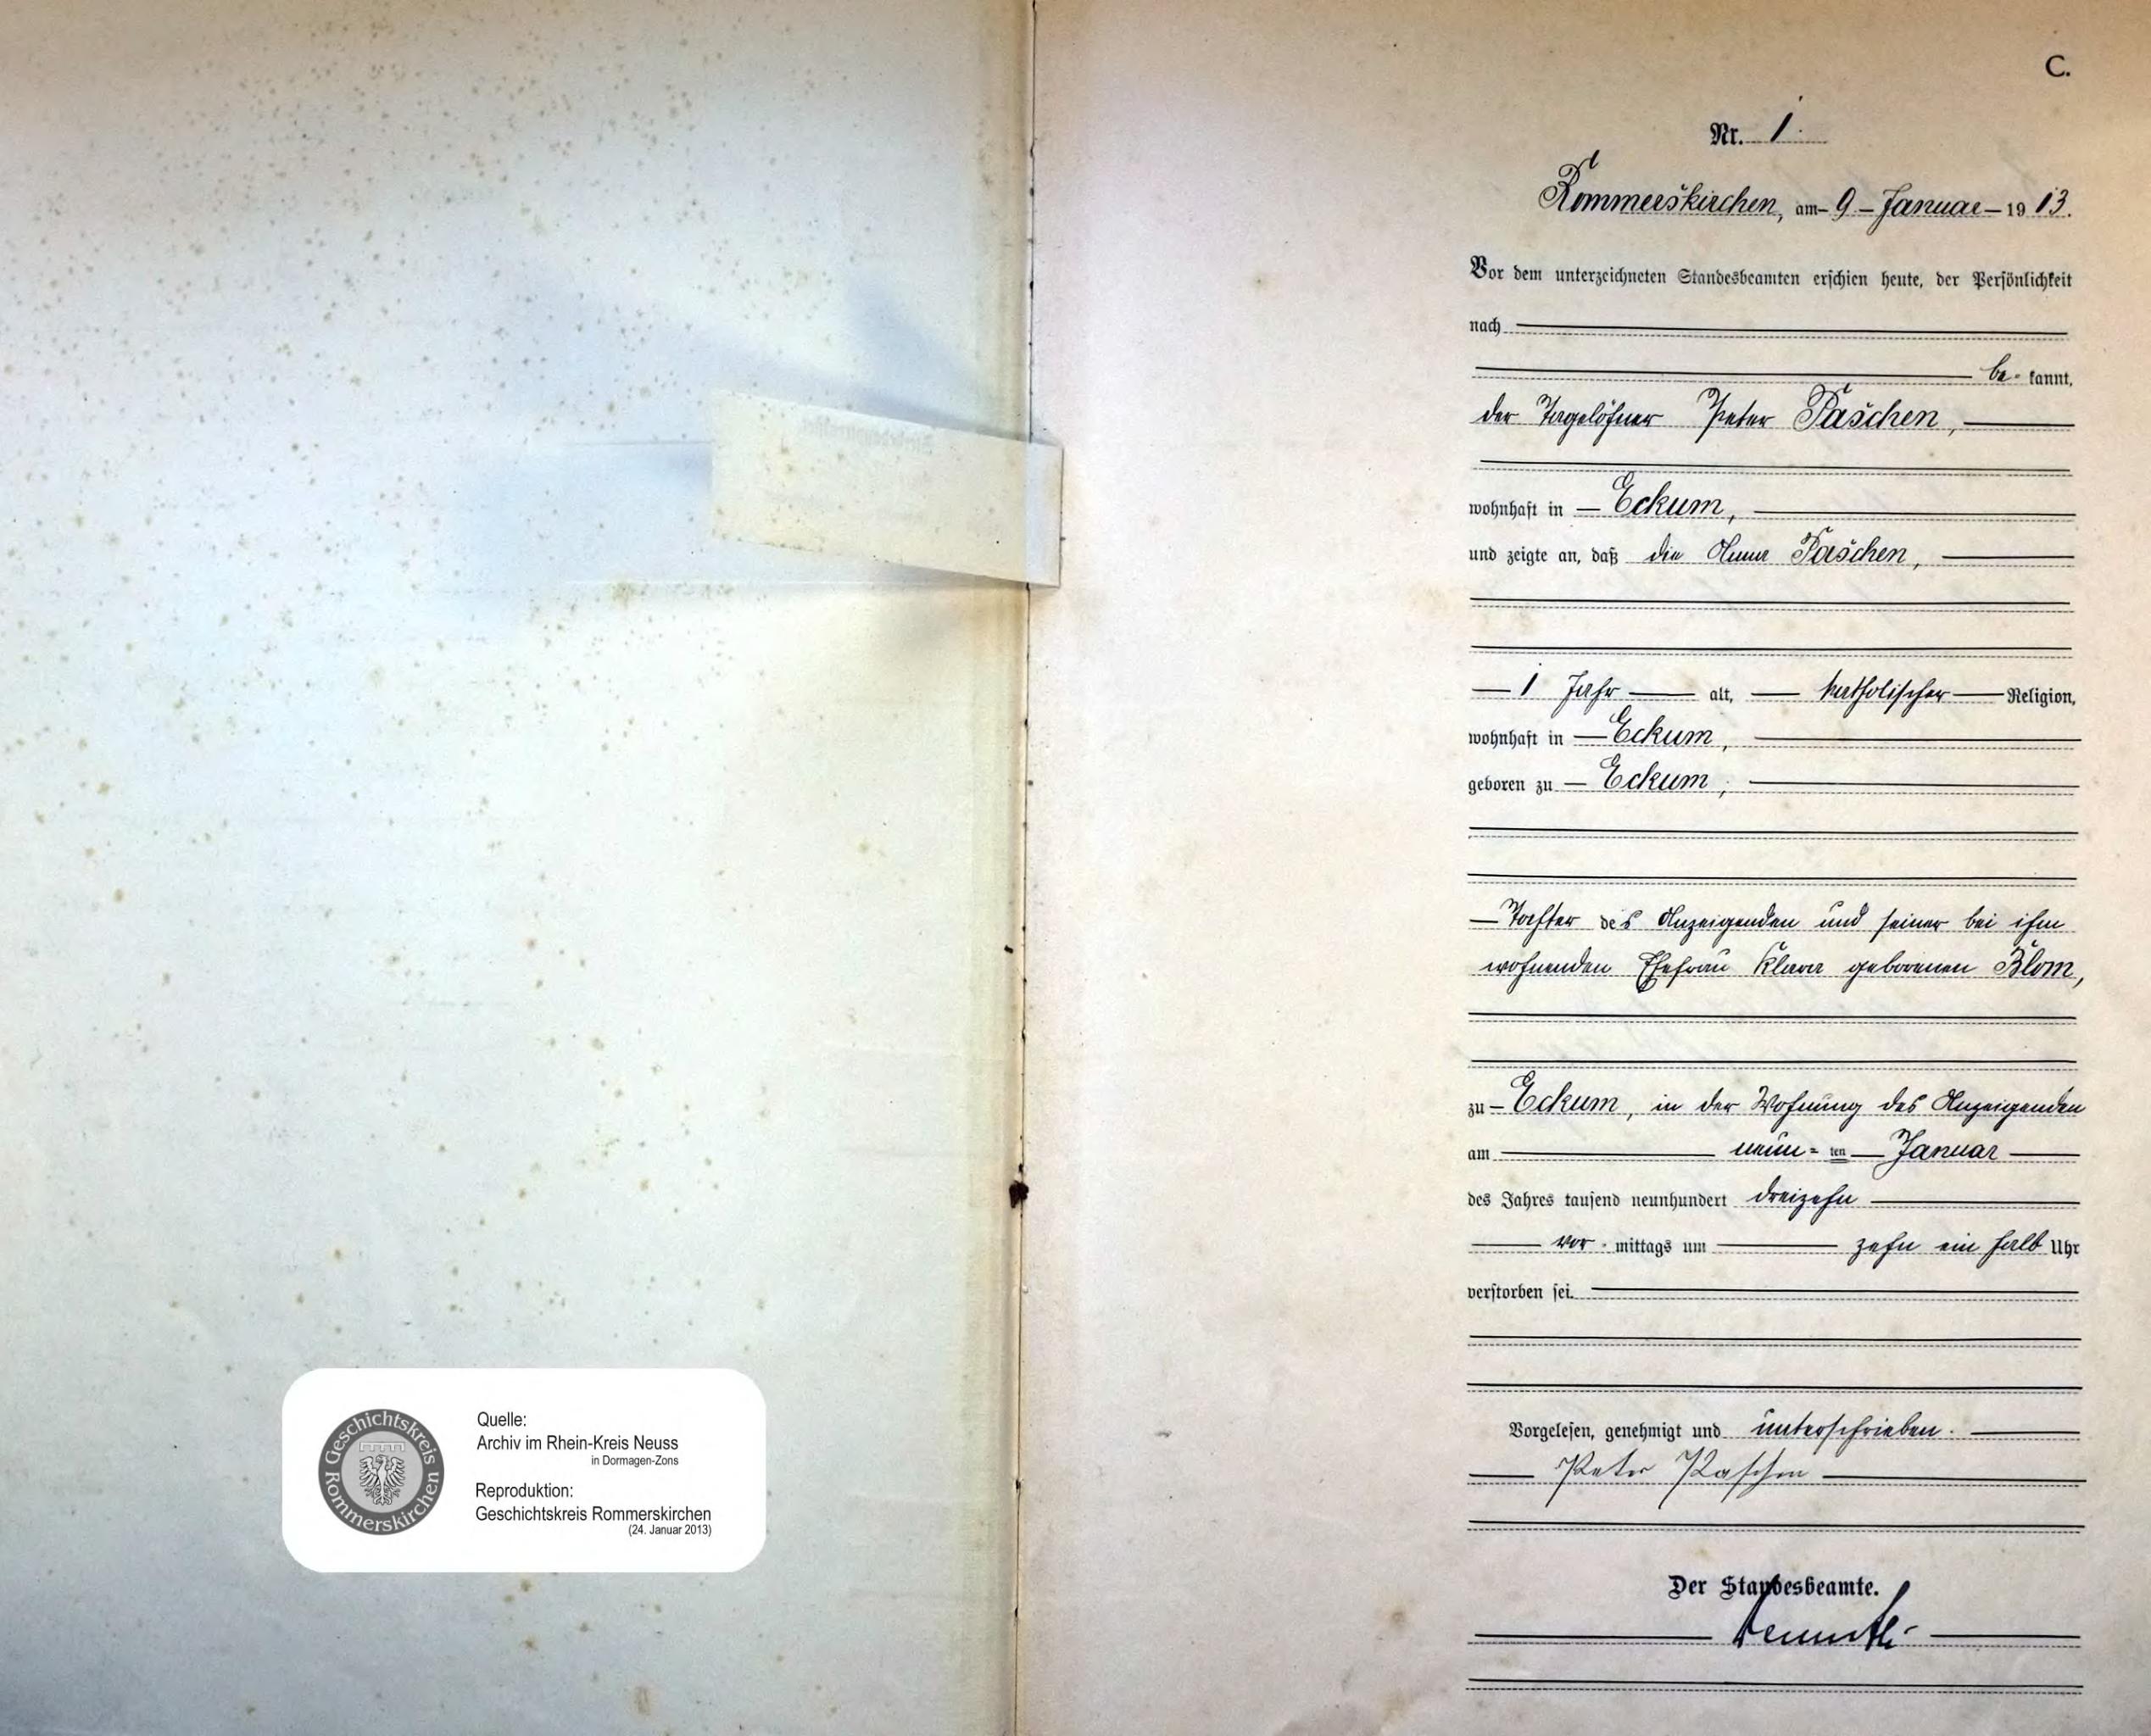 Geschichtskreis
Rommerskirchen
Quelle:
Archiv im Rhein-Kreis Neuss
in Dormagen-Zons
Reproduktion:
Geschichtskreis Rommerskirchen
(24. Januar 2013)
C.
Nr. 1.
Rommerskirchen, am 9 Januar 1913.
Vor dem unterzeichneten Standesbeamten erschien heute, der Persönlichkeit
nach
be- kannt,
der Tagelöhner Peter Paschen,
wohnhaft in Eckum,
und zeigte an, daß die Anna Paschen,
1 Jahr alt, katholischer Religion,
wohnhaft in Eckum,
geboren zu Eckum,
Tochter des Anzeigenden und seiner bei ihm
wohnenden Ehefrau Klara geborenen Blom,
zu Eckum, in der Wohnung des Anzeigenden
am neun=ten Januar
des Jahres tausend neunhundert dreizehn
vor-mittags um zehn ein halb Uhr
verstorben sei.
Vorgelesen, genehmigt und unterschrieben.
Peter Paschen
Der Standesbeamte.